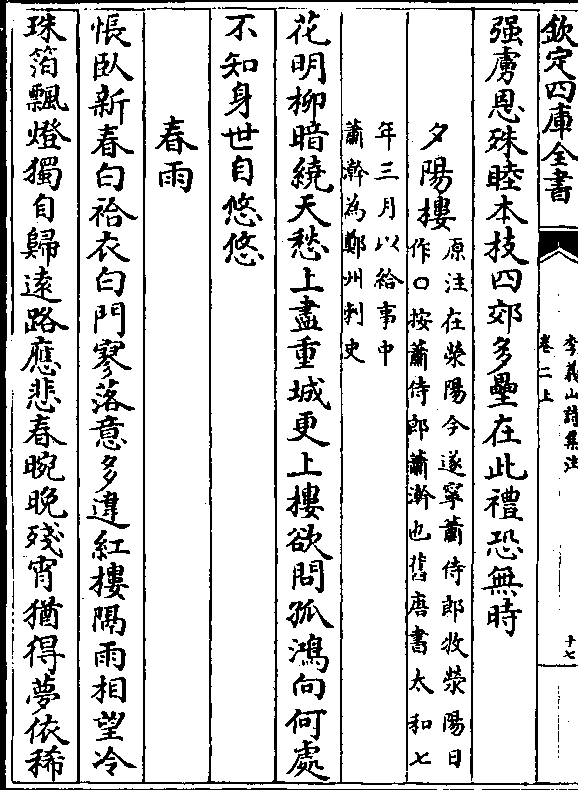 欽定四庫全書
李義山詩集注
卷二上
十七
强虜恩殊睦本技四郊多壘在此禮恐無時
夕陽樓原注在滎陽今遂寧蕭侍郎牧滎陽日
作〇按蕭侍郎蕭澣也舊唐書太和七
年三月以給事中
蕭澣為鄭州刺史
花明柳暗繞天愁上盡重城更上樓欲問孤鴻向何處
不知身世自悠悠
春雨
悵臥新春白袷衣白門寥落意多違紅樓隔雨相望冷
珠箔飄燈獨自歸逺路應悲春晼晚殘宵猶得夢依稀